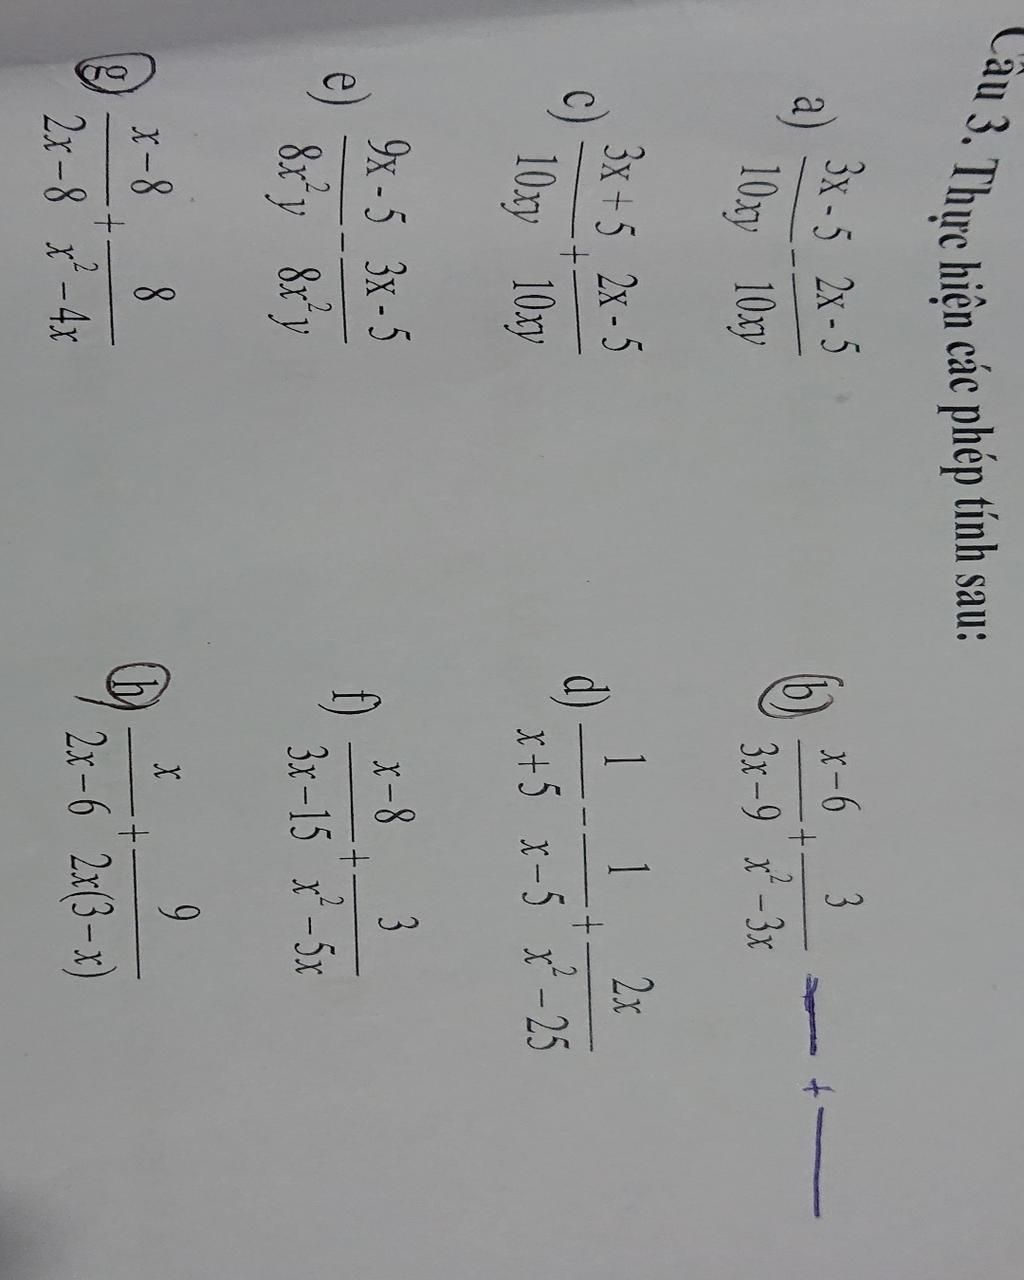 Câu 3. Thực hiện các phép tính sau:
a) \frac{3x-5}{10xy} - \frac{2x-5}{10xy}
b) \frac{x-6}{3x-9} + \frac{3}{x^2-3x}
c) \frac{3x+5}{10xy} + \frac{2x-5}{10xy}
d) \frac{1}{x+5} - \frac{1}{x-5} + \frac{2x}{x^2-25}
e) \frac{9x-5}{8x^2y} - \frac{3x-5}{8x^2y}
f) \frac{x-8}{3x-15} + \frac{3}{x^2-5x}
g) \frac{x-8}{2x-8} + \frac{8}{x^2-4x}
h) \frac{x}{2x-6} + \frac{9}{2x(3-x)}